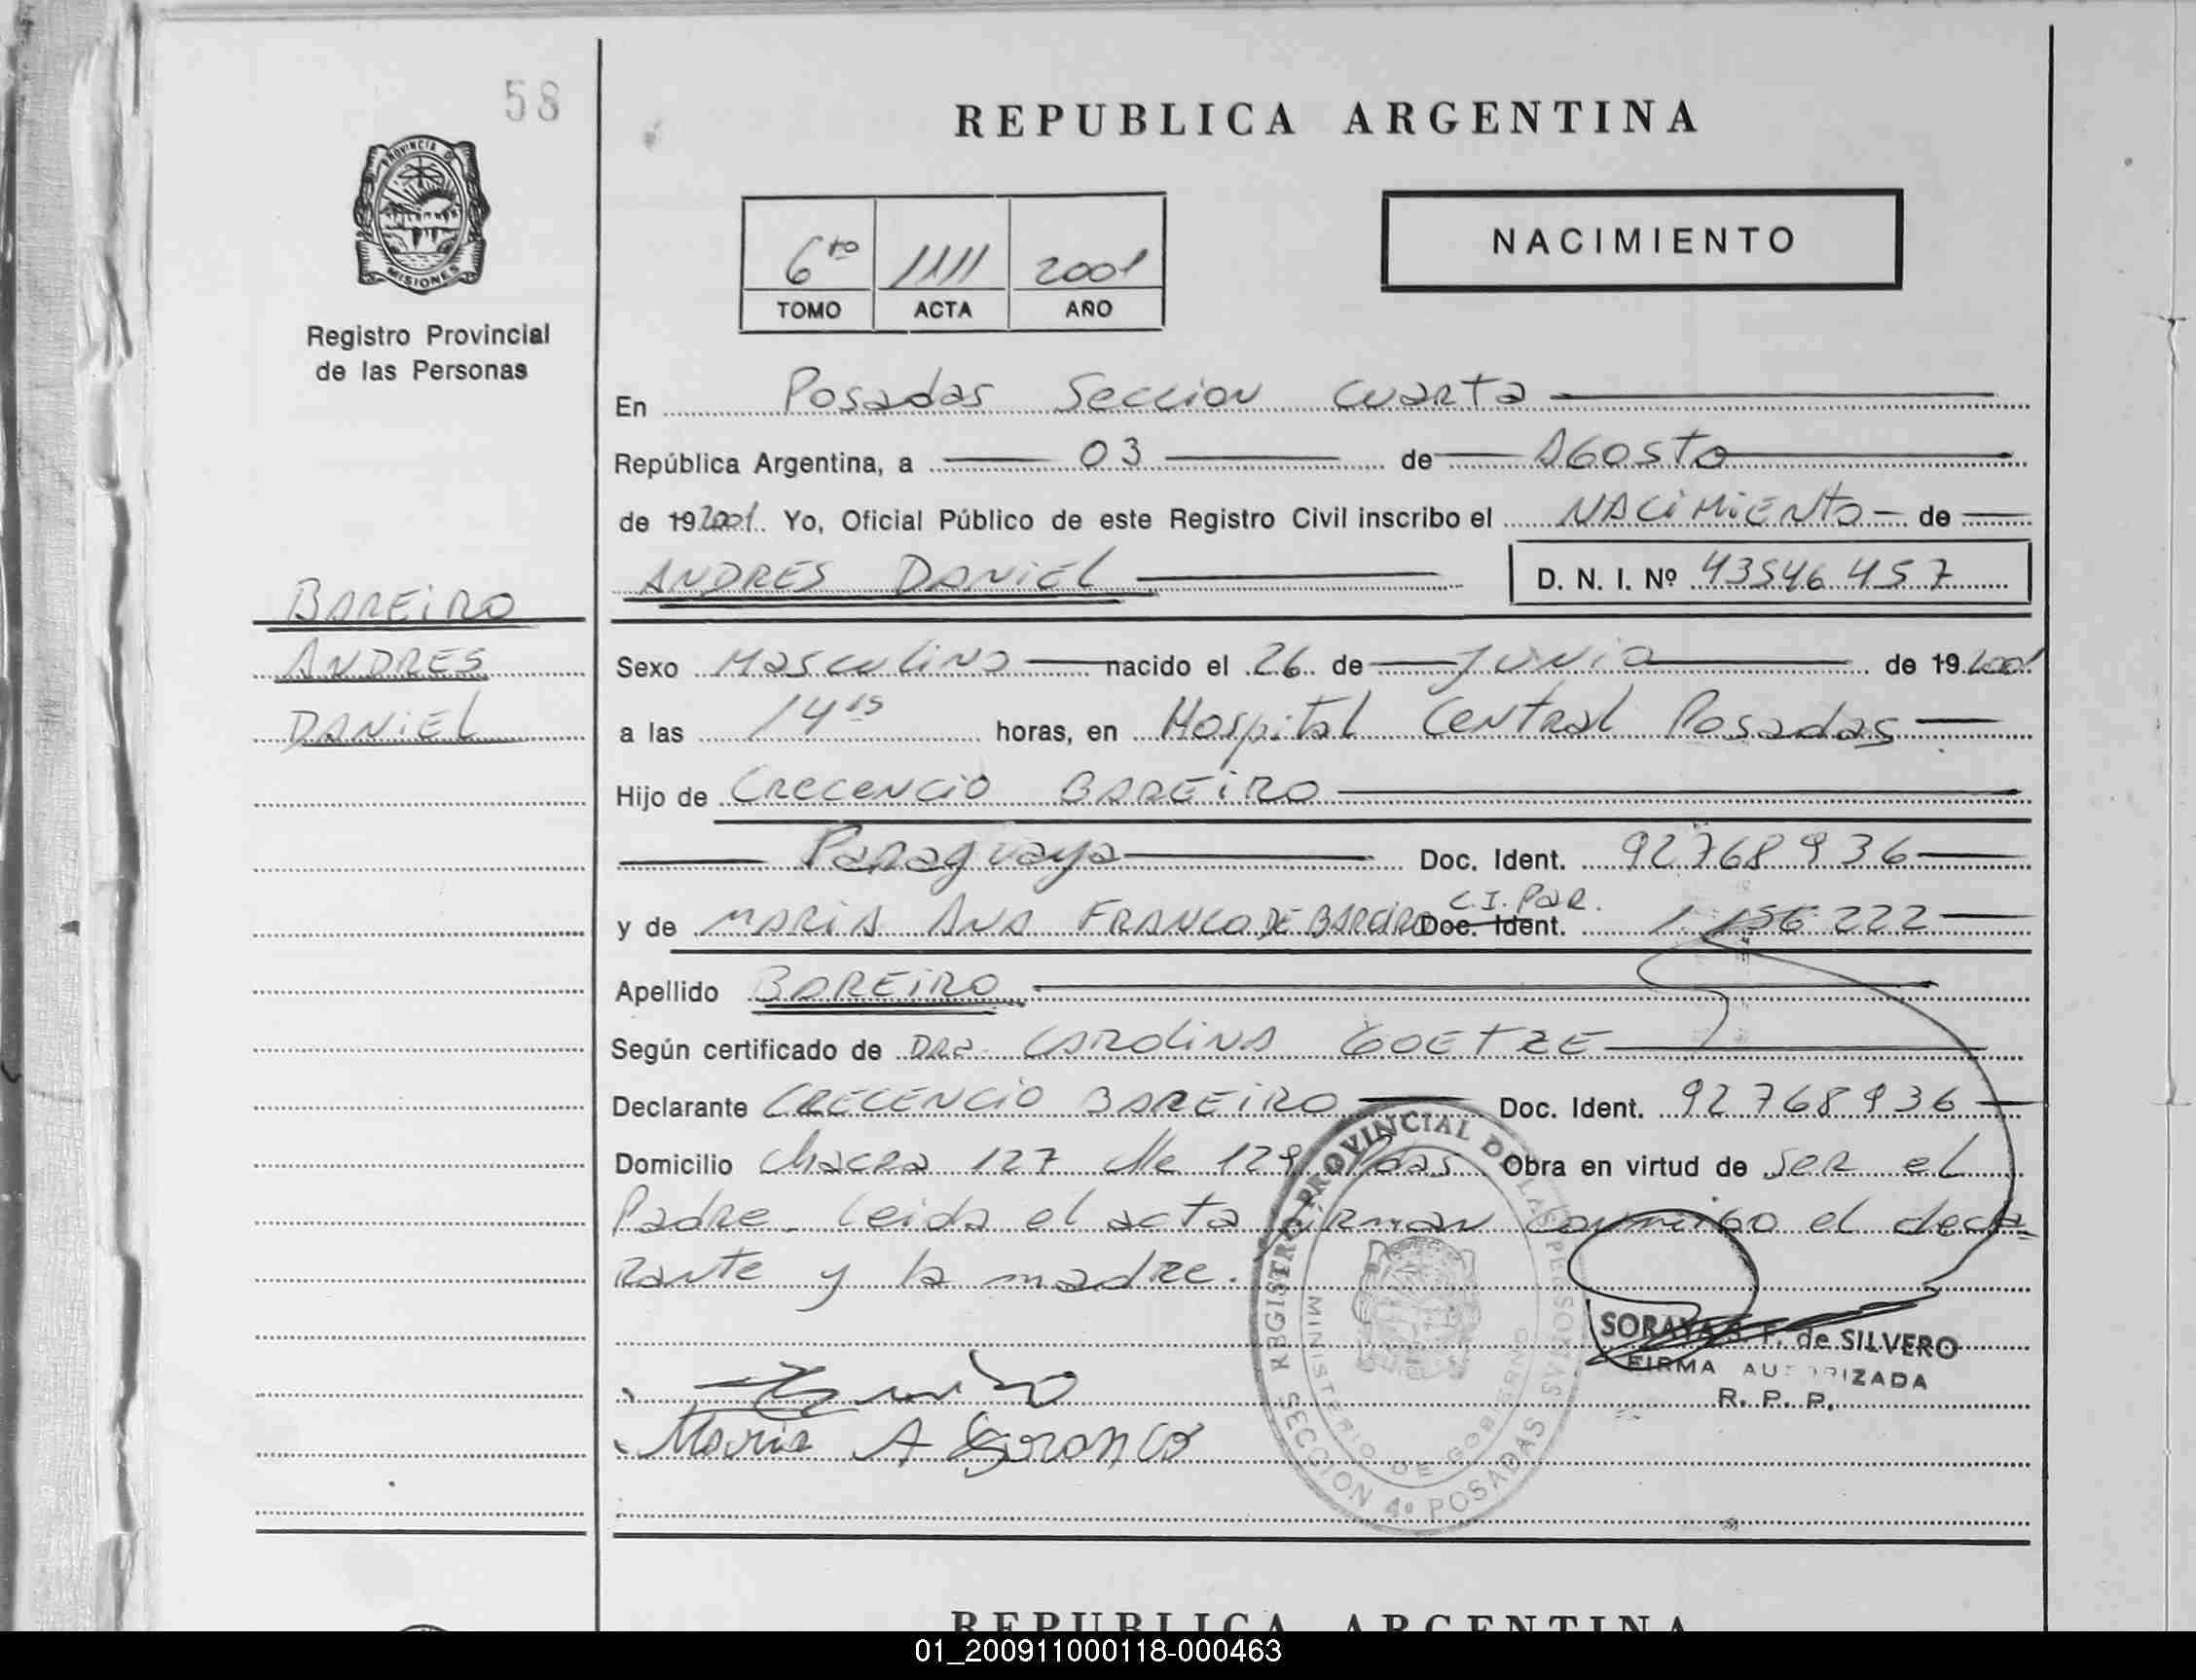 58
REPUBLICA ARGENTINA
PROVINCIA DE
MISIONES
Registro Provincial
de las Personas
6to 1111 2001
TOMO ACTA AÑO
NACIMIENTO
En Posadas Seccion Cuarta
República Argentina, a 03 de AGOSTO
de 19 2001. Yo, Oficial Público de este Registro Civil inscribo el NACIMIENTO de
ANDRES DANIEL D. N. I. Nº 43546457
BAREIRO
ANDRES
DANIEL
Sexo Masculino nacido el 26 de JUNIO de 19 2001
a las 14 15 horas, en Hospital Central Posadas
Hijo de Crecencio BAREIRO
Paraguaya Doc. Ident. 92768936
C.I. PAR.
y de MARIA ANA FRANCO DE BAREIRO Doc. Ident. 1.156.222
Apellido BAREIRO
Según certificado de DRa. CAROLINA GOETZE
Declarante CRECENCIO BAREIRO Doc. Ident. 92768936
Domicilio Chacra 127 129 Pdas Obra en virtud de ser el
Padre. Leida el acta firman conmigo el decla
rante y la madre.
REGISTRO PROVINCIAL DE LAS PERSONAS
MINISTERIO DE GOBIERNO
SECCION 4º POSADAS
SORAYA S. F. de SILVERO
FIRMA AUTORIZADA
R. P. P.
Maria A Franco
REPUBLICA ARGENTINA
01_200911000118-000463